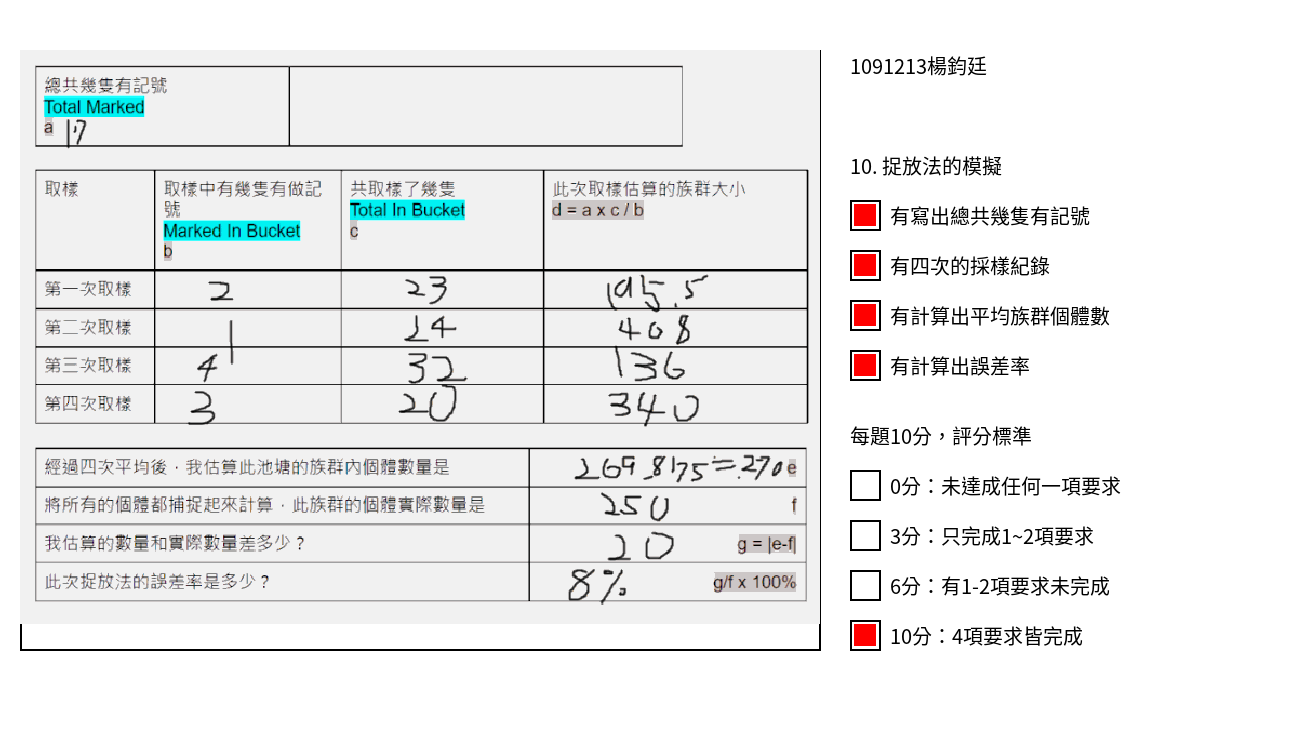 總共幾隻有記號
Total Marked
a 17
取樣 取樣中有幾隻有做記 共取樣了幾隻 此次取樣估算的族群大小
號 Total In Bucket d = a x c / b
Marked In Bucket c
b
第一次取樣 2 23 195.5
第二次取樣 1 24 408
第三次取樣 4 32 136
第四次取樣 3 20 340
經過四次平均後，我估算此池塘的族群內個體數量是 269.8175=270 e
將所有的個體都捕捉起來計算，此族群的個體實際數量是 250 f
我估算的數量和實際數量差多少？ 20 g = |e-f|
此次捉放法的誤差率是多少？ 8% g/f x 100%
1091213楊鈞廷
10. 捉放法的模擬
有寫出總共幾隻有記號
有四次的採樣紀錄
有計算出平均族群個體數
有計算出誤差率
每題10分，評分標準
0分：未達成任何一項要求
3分：只完成1~2項要求
6分：有1-2項要求未完成
10分：4項要求皆完成